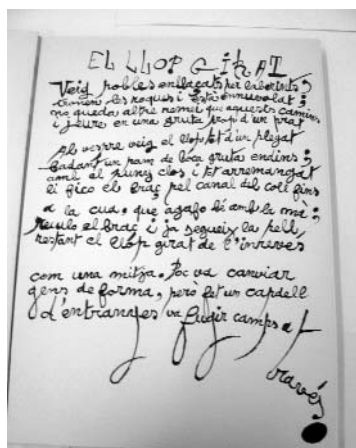 EL LLOP GIRAT
Veig pobles enllaçats per laberints;
tronen les roques i està ennuvolat;
no queda altre remei que aquests camins
i jeure en una gruta prop d'un prat
Al vespre veig el llop tot d'un plegat
badant un pam de boca gruta endins;
amb el puny clos i tot arremangat
li fico el braç pel canal del coll fins
a la cua, que agafo bé amb la mà;
reculo el braç i ja segueix la pell,
restant el llop girat de l'inrevés
com una mitja. Poc va canviar
gens de forma, però fet un capdell
d'entranyes va fugir camps a través